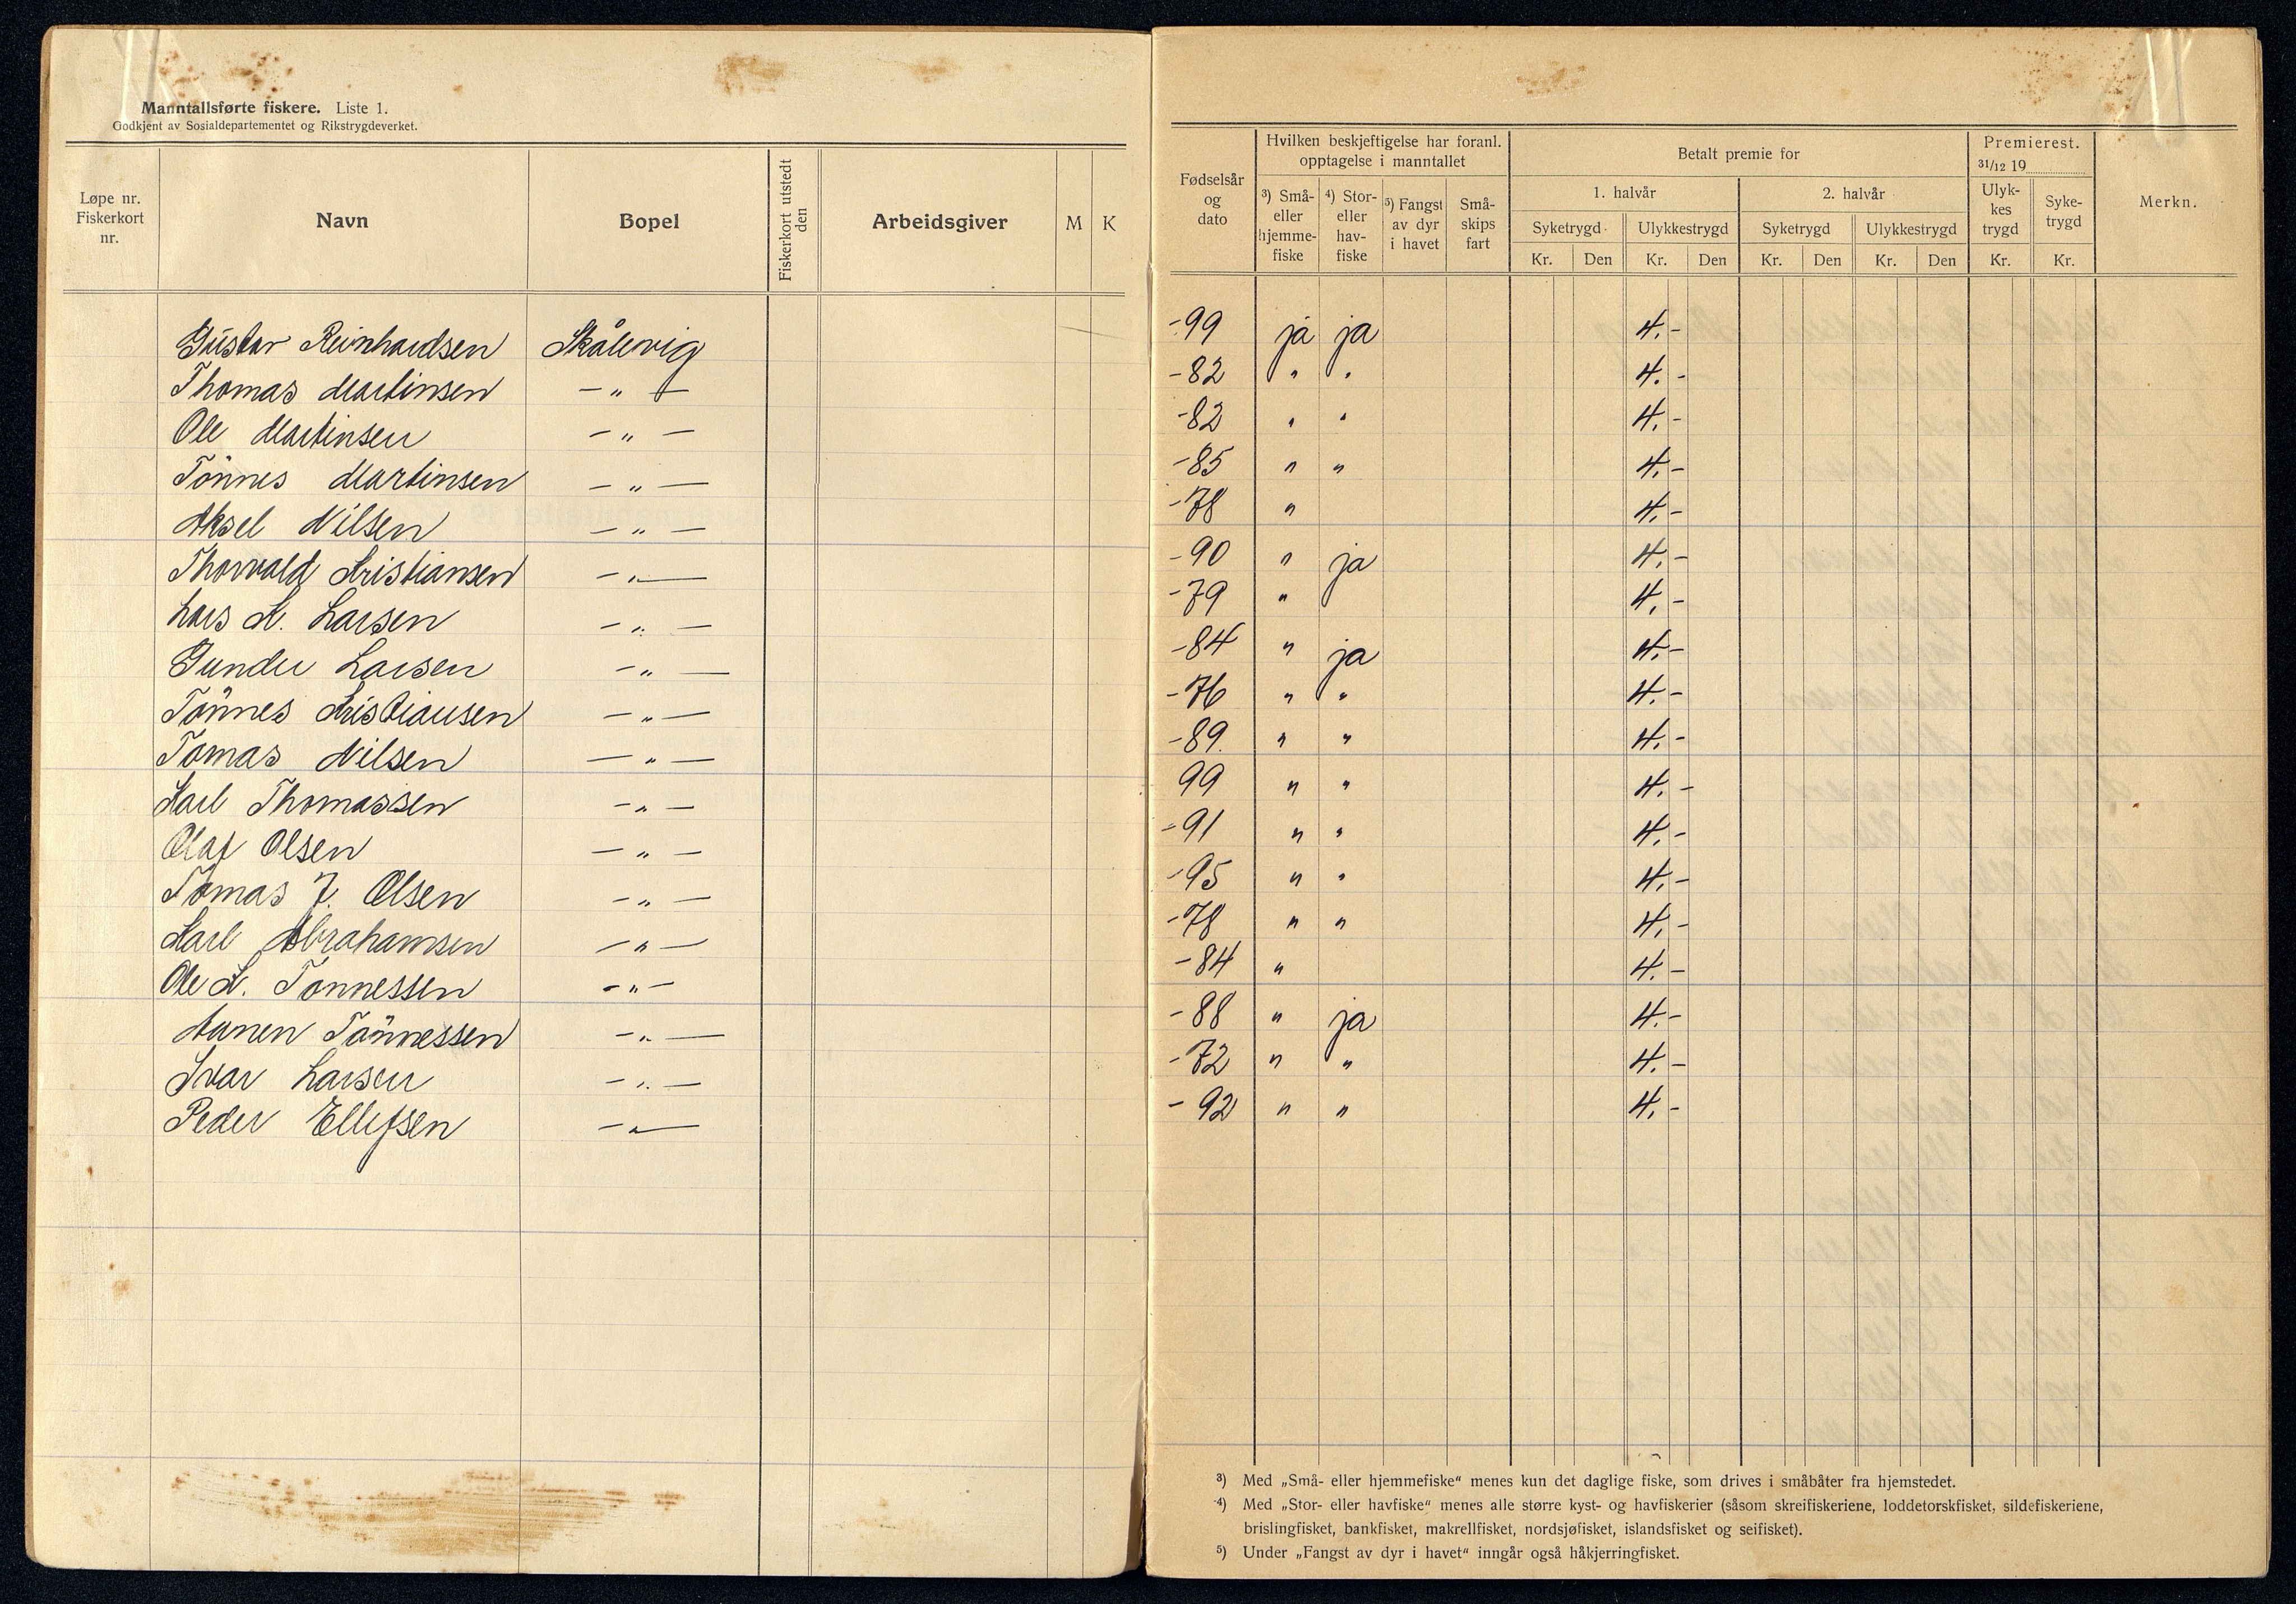 Manntallsførte fiskere. Liste 1.
Godkjent av Sosialdepartementet og Rikstrygdeverket.
Løpe nr. Fiskerkort nr.
Navn
Bopel
Fiskerkort utstedt den
Arbeidsgiver
M
K
Gustav Reinhardsen Skålevig
Thomas Martinsen — " —
Ole Martinsen — " —
Tönnes Martinsen — " —
Aksel Nilsen — " —
Thorvald Kristiansen — " —
Lars K. Larsen — " —
Gunder Larsen — " —
Tönnes Kristiansen — " —
Tomas Nilsen — " —
Karl Thomassen — " —
Olaf Olsen — " —
Tomas J. Olsen — " —
Karl Abrahamsen — " —
Ole K. Tönnessen — " —
Aanen Tönnessen — " —
Ivar Larsen — " —
Peder Ellefsen — " —
Fødselsår og dato
Hvilken beskjeftigelse har foranl. opptagelse i manntallet
3) Små- eller hjemme-fiske
4) Stor- eller hav-fiske
5) Fangst av dyr i havet
Små-skips fart
Betalt premie for
1. halvår
2. halvår
Syketrygd
Ulykkestrygd
Syketrygd
Ulykkestrygd
Kr. Den Kr. Den Kr. Den Kr. Den
Premierest.
31/12 19
Ulyk-kes trygd
Syke-trygd
Kr. Kr.
Merkn.
-99 ja ja 4.-
-82 " " 4.-
-82 " " 4.-
-85 " " 4.-
-78 " 4.-
-90 " ja 4.-
-79 " 4.-
-84 " ja 4.-
-76 " " 4.-
-89. " " 4.-
99 " " 4.-
-91 " " 4.-
-95 " " 4.-
-78 " " 4.-
-84 " 4.-
-88 " ja 4.-
-72 " " 4.-
-92 " " 4.-
3) Med „Små- eller hjemmefiske" menes kun det daglige fiske, som drives i småbåter fra hjemstedet.
4) Med „Stor- eller havfiske" menes alle større kyst- og havfiskerier (såsom skreifiskeriene, loddetorskfisket, sildefiskeriene,
brislingfisket, bankfisket, makrellfisket, nordsjøfisket, islandsfisket og seifisket).
5) Under „Fangst av dyr i havet" inngår også håkjerringfisket.